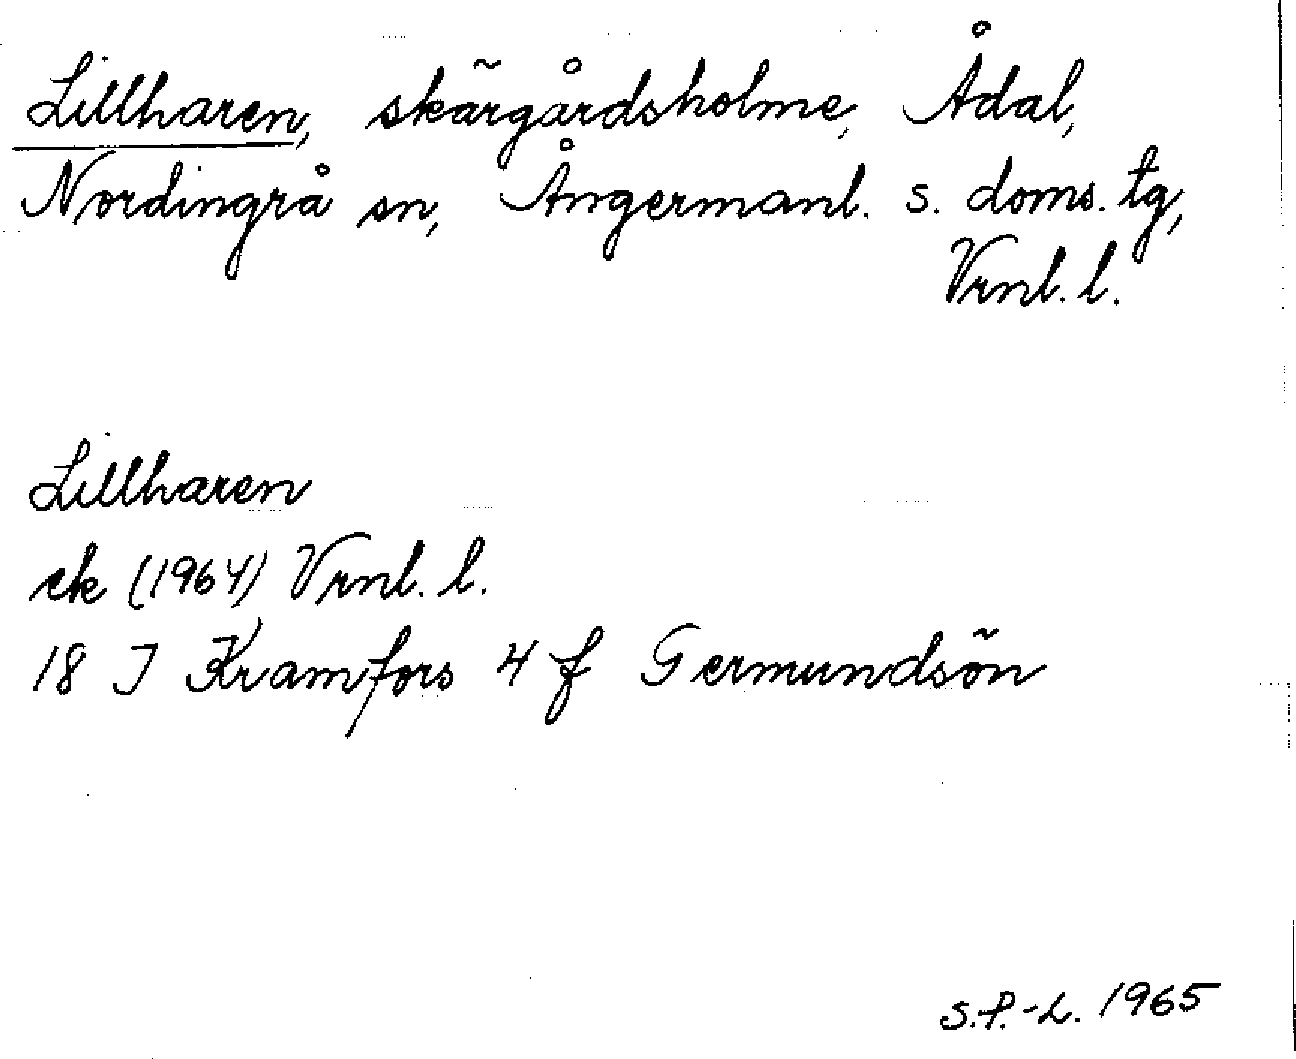 Lillharen, skärgårdsholme, Ådal,
Nordingrå sn, Ångermanl. s. doms. tg,
Vrnl. l.
Lillharen
ek (1964) Vrnl. l.
18 J Kramfors 4 f Germundsön
S.P.-L. 1965